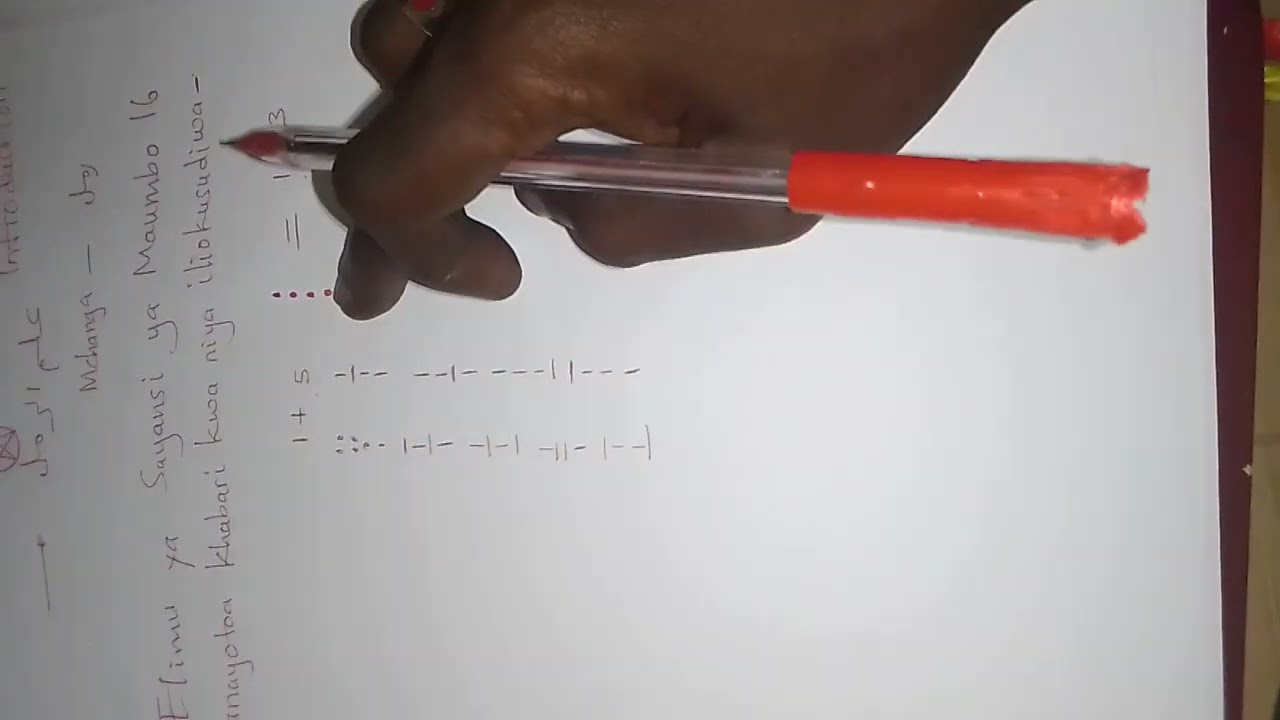 Introduction
علم الرمل
Mchanga — رمل
Elimu ya Sayansi ya Maumbo 16
anayotoa khabari kwa niya iliokusudiwa-
1 + 5 = 1 3